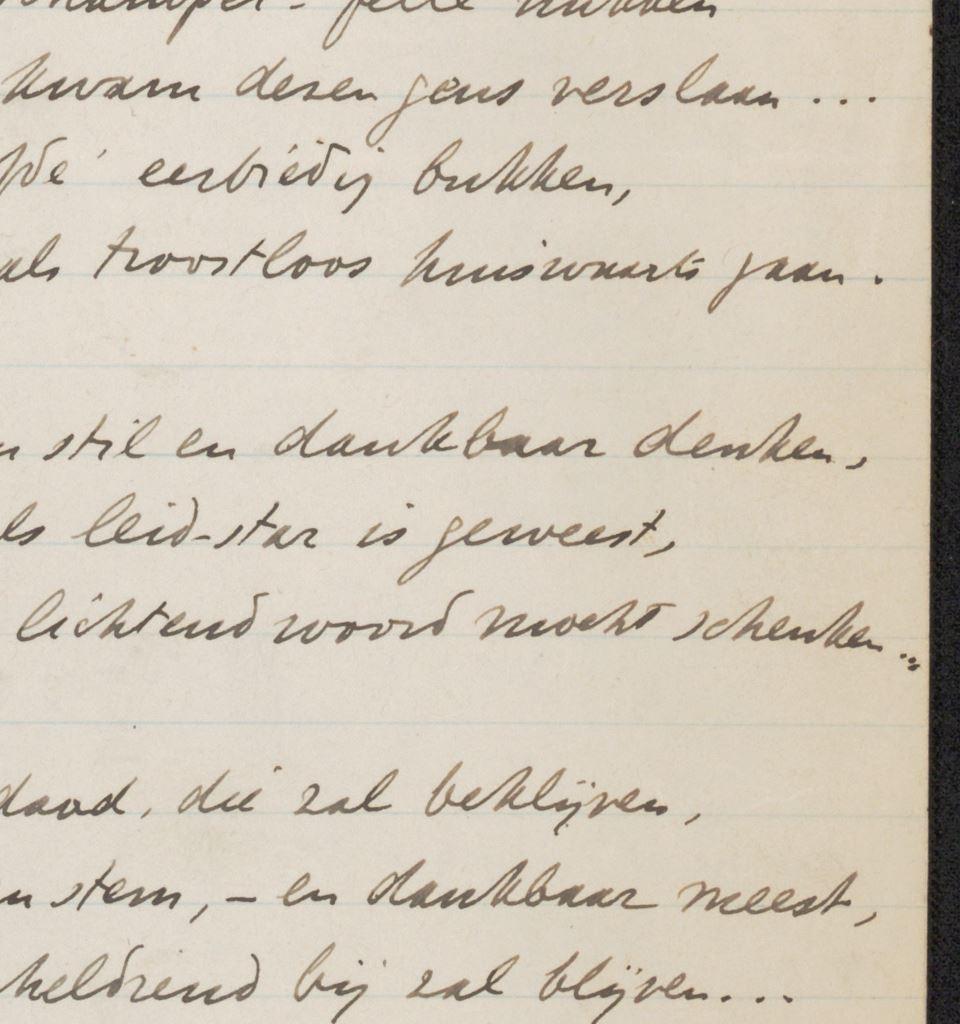 felle nukken
kwam dezen geus verslaan...
eerbiedig bukken,
als troostloos huiswaarts gaan.
stil en dankbaar denken,
leid-star is geweest,
lichtend woord mocht schenken...
daad, die zal beklijven,
stem, - en dankbaar meest,
heldrend bij zal blijven...